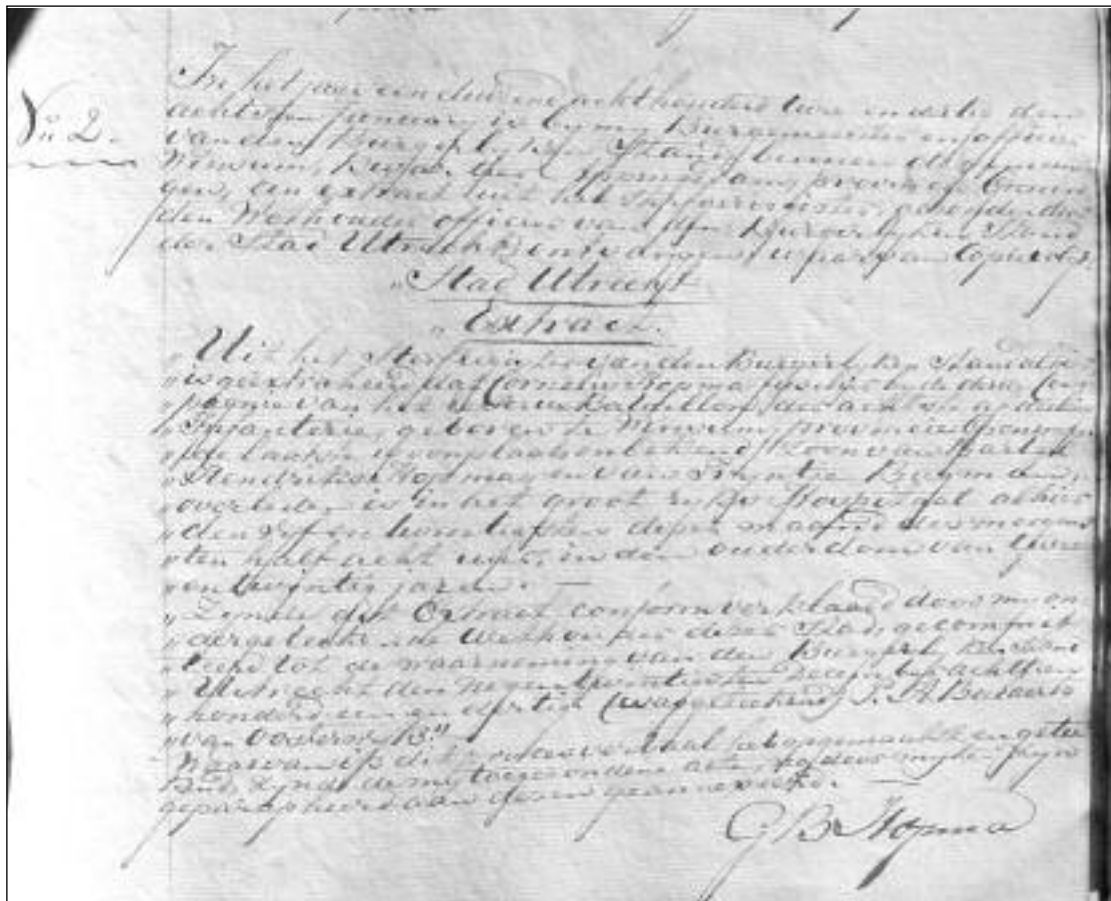 No 2.
In het jaar een duizend acht honderd twee en dertig den
achtsten January is by my Burgemeester en officier
van den Burgerlyken Stand binnen de gemeente
Winsum, provincie Gronin
gen, een extract uit het register, gehouden door
den Wethouder officier van den Burgerlyken Stand
der Stad Utrecht, ontvangen, waarvan Copie volgt.
"Stad Utrecht
"Extract.
"Uit het Sterfregister van den Burgerlyken Stand alhier
"is geextraheerd dat Cornelis Hopma fuselier by de derde Com
"pagnie van het Bataillon der achttiende afdeeling
"Infanterie, geboren te Winsum, provincie Groningen
"laatste woonplaats onbekend, Zoon van Bartelt
"Hendriks Hopma en van Tryntje
"overleden is in het groot ryks Hospitaal alhier
"den vyf en twintigsten dezer maand des morgens
"ten half acht ure, in den ouderdom van twee
"en twintig jaren.
"Zynde dit Extract conform verklaard door my on
"dergeteekende Wethouder dezer Stad, gecommit
"teerd tot de waarneming van den Burgerlyken Stand
"Utrecht den negen en twintigsten December achttien
"honderd een en dertig (was geteekend) J. A.
"van Oosterwyk B."
Waarvan is dit proces verbaal opgemaakt en getee
kend, zynde de my toegezondene acte, na door my te zyn
geparapheerd aan dezen geannexeerd.
G B Hopma